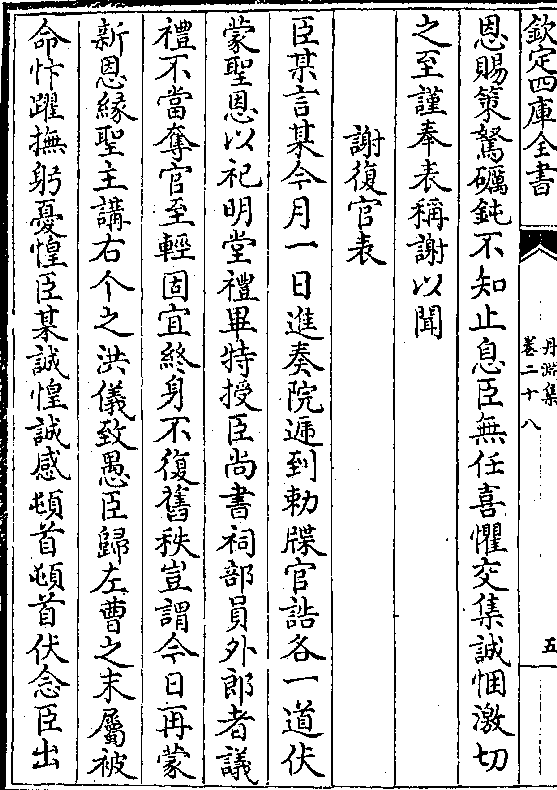 欽定四庫全書
丹淵集
卷二十八
五
恩賜策駑礪鈍不知止息臣無任喜懼交集誠悃激切
之至謹奉表稱謝以聞
謝復官表
臣某言某今月一日進奏院遞到勅牒官誥各一道伏
蒙聖恩以祀明堂禮畢特授臣尚書祠部員外郎者議
禮不當奪官至輕固宜終身不復舊秩豈謂今日再蒙
新恩緣聖主講右个之洪儀致愚臣歸左曹之末屬被
命忭躍撫躬憂惶臣某誠惶誠感頓首頓首伏念臣出